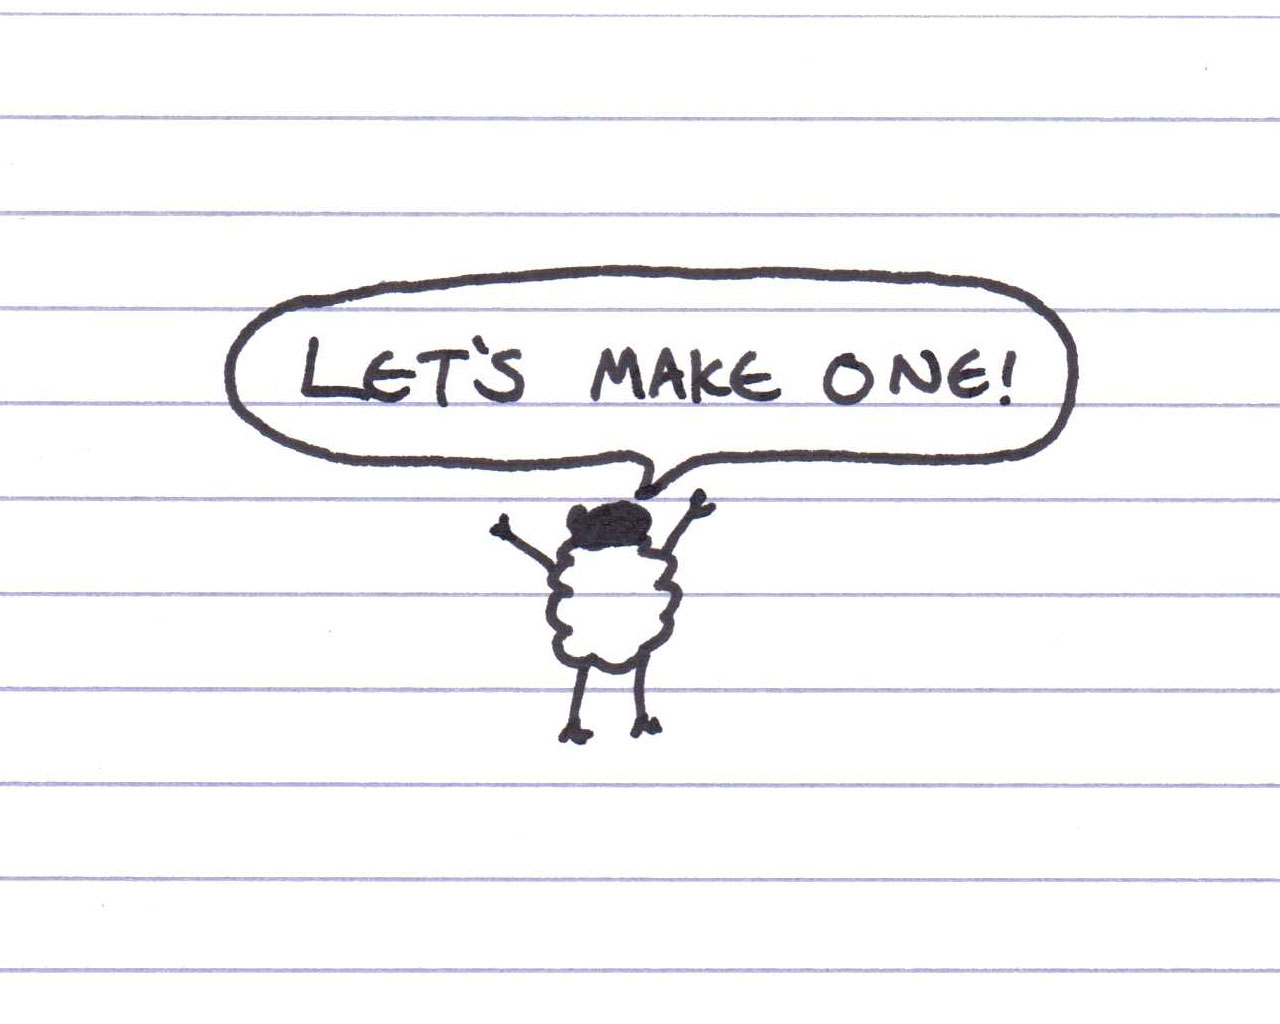 LET'S MAKE ONE!